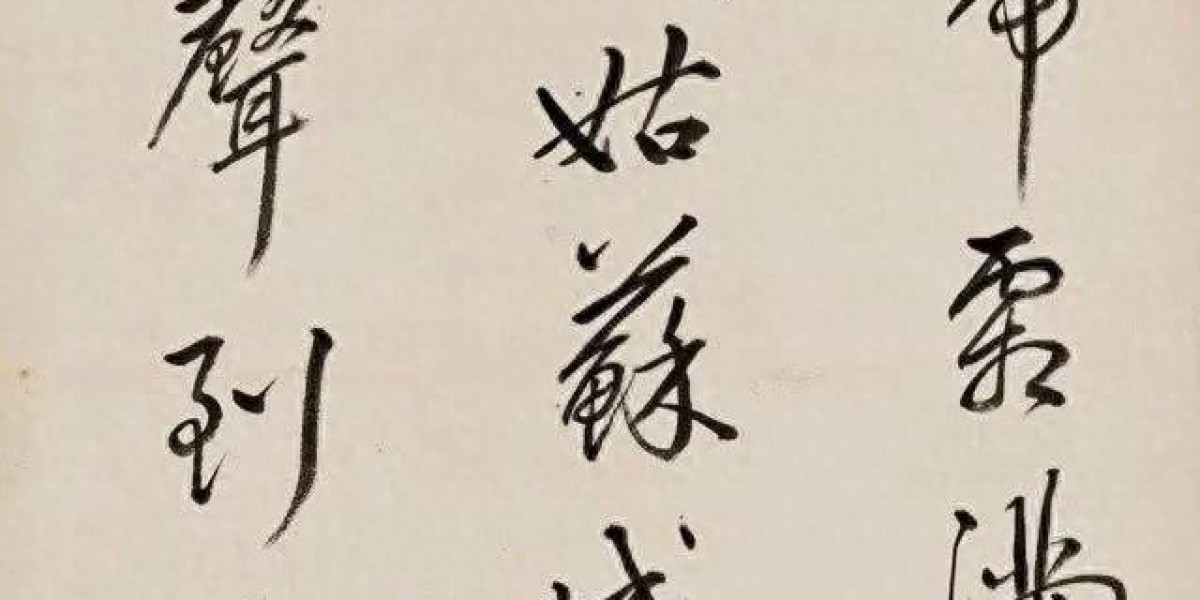 啼霜滿
姑蘇城
聲到